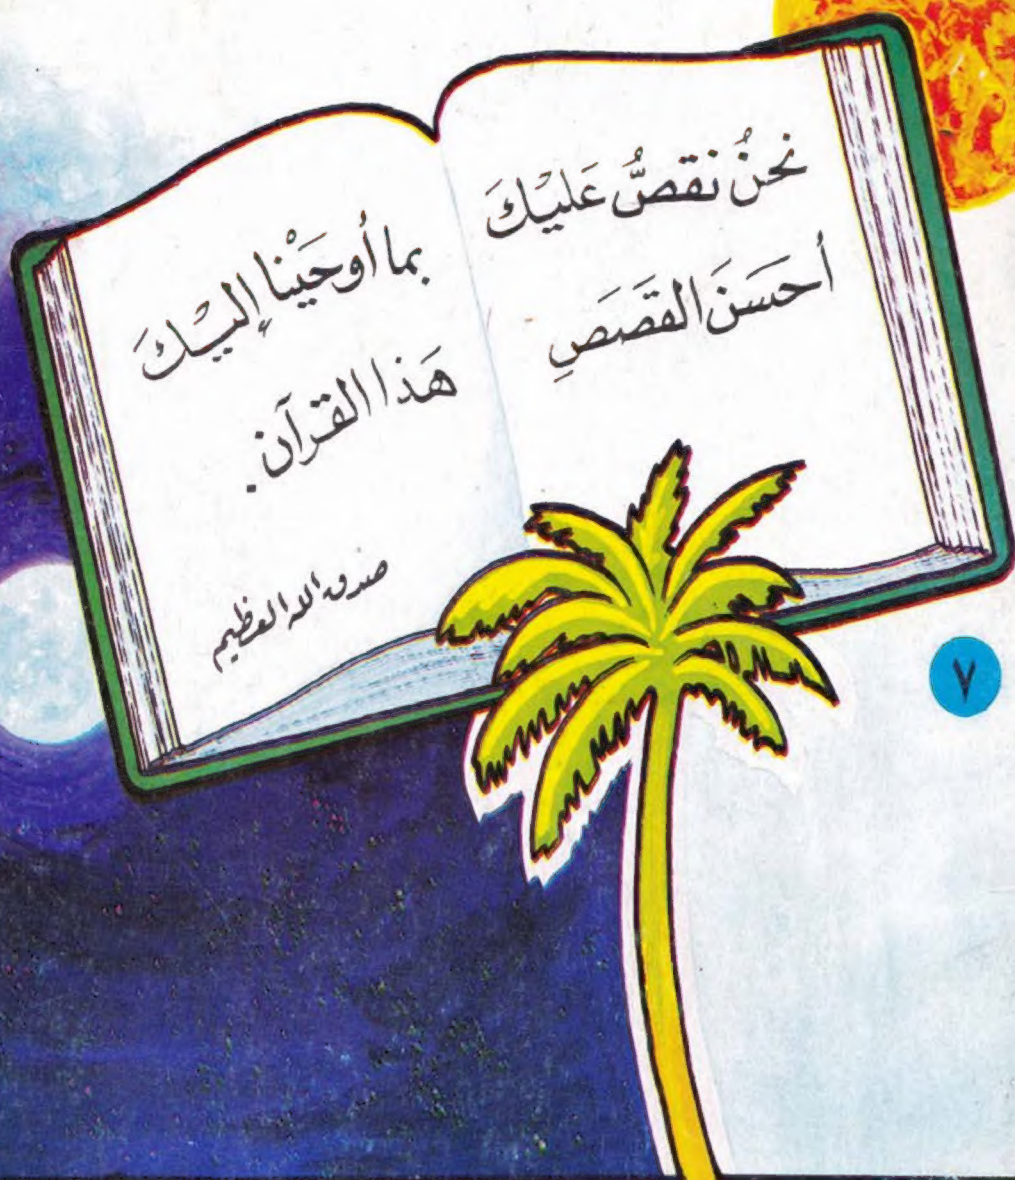 نحنُ نقصُّ عَليْكَ
أحسَنَ القَصَصِ
بما أُوحَيْنا إليْكَ
هَذا القرآن.
صدق الله العظيم
٧